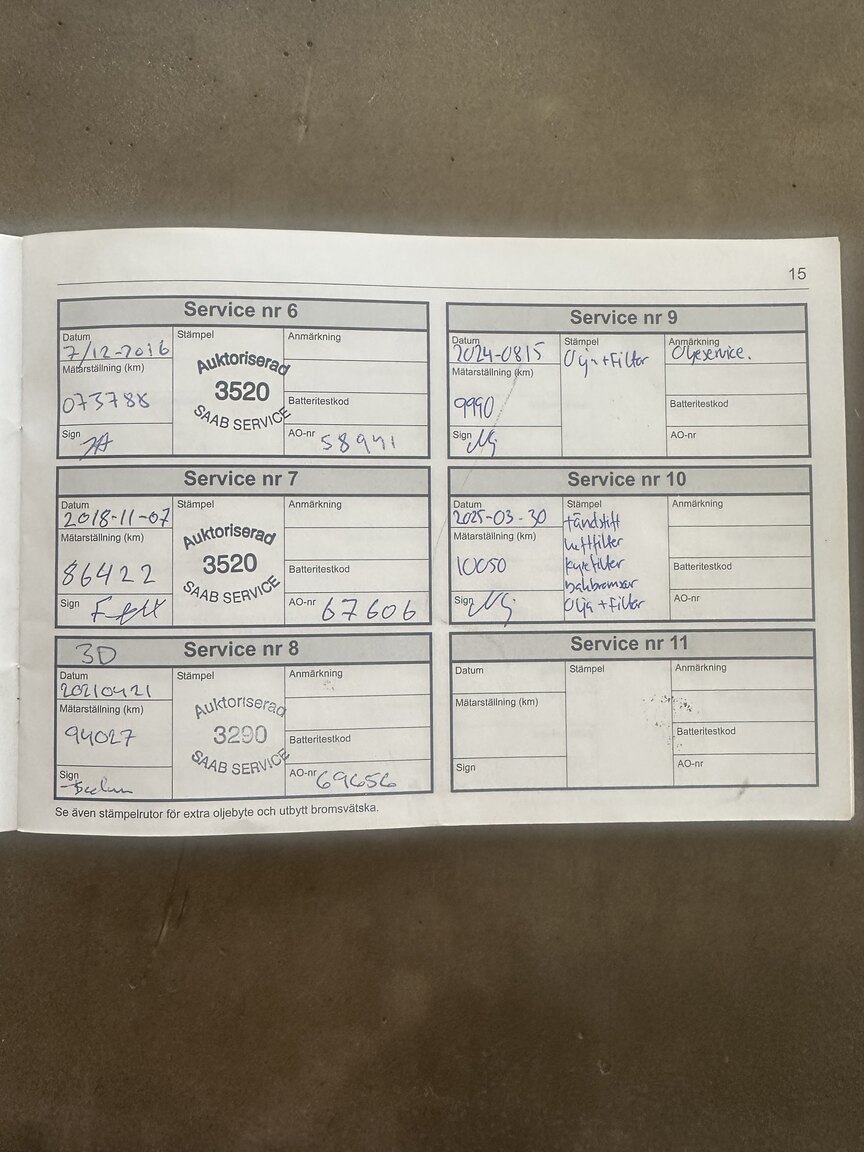 15
Service nr 6
Datum
7/12-2016
Stämpel
Anmärkning
Mätarställning (km)
Auktoriserad
3520
SAAB SERVICE
Batteritestkod
Sign
AO-nr 58941
Service nr 7
Datum
2018-11-07
Stämpel
Anmärkning
Mätarställning (km)
86422
Auktoriserad
3520
SAAB SERVICE
Batteritestkod
Sign
AO-nr 67606
3D Service nr 8
Datum
20210421
Stämpel
Anmärkning
Mätarställning (km)
94027
Auktoriserad
3290
SAAB SERVICE
Batteritestkod
Sign
AO-nr 69656
Se även stämpelrutor för extra oljebyte och utbytt bromsvätska.
Service nr 9
Datum
2024-0815
Stämpel
Olja + Filter
Anmärkning
Oljeservice.
Mätarställning (km)
9990
Batteritestkod
Sign
AO-nr
Service nr 10
Datum
2025-03-30
Stämpel
tändstift
luftfilter
kupefilter
bakbromsar
Olja + Filter
Anmärkning
Mätarställning (km)
10050
Batteritestkod
Sign
AO-nr
Service nr 11
Datum
Stämpel
Anmärkning
Mätarställning (km)
Batteritestkod
Sign
AO-nr